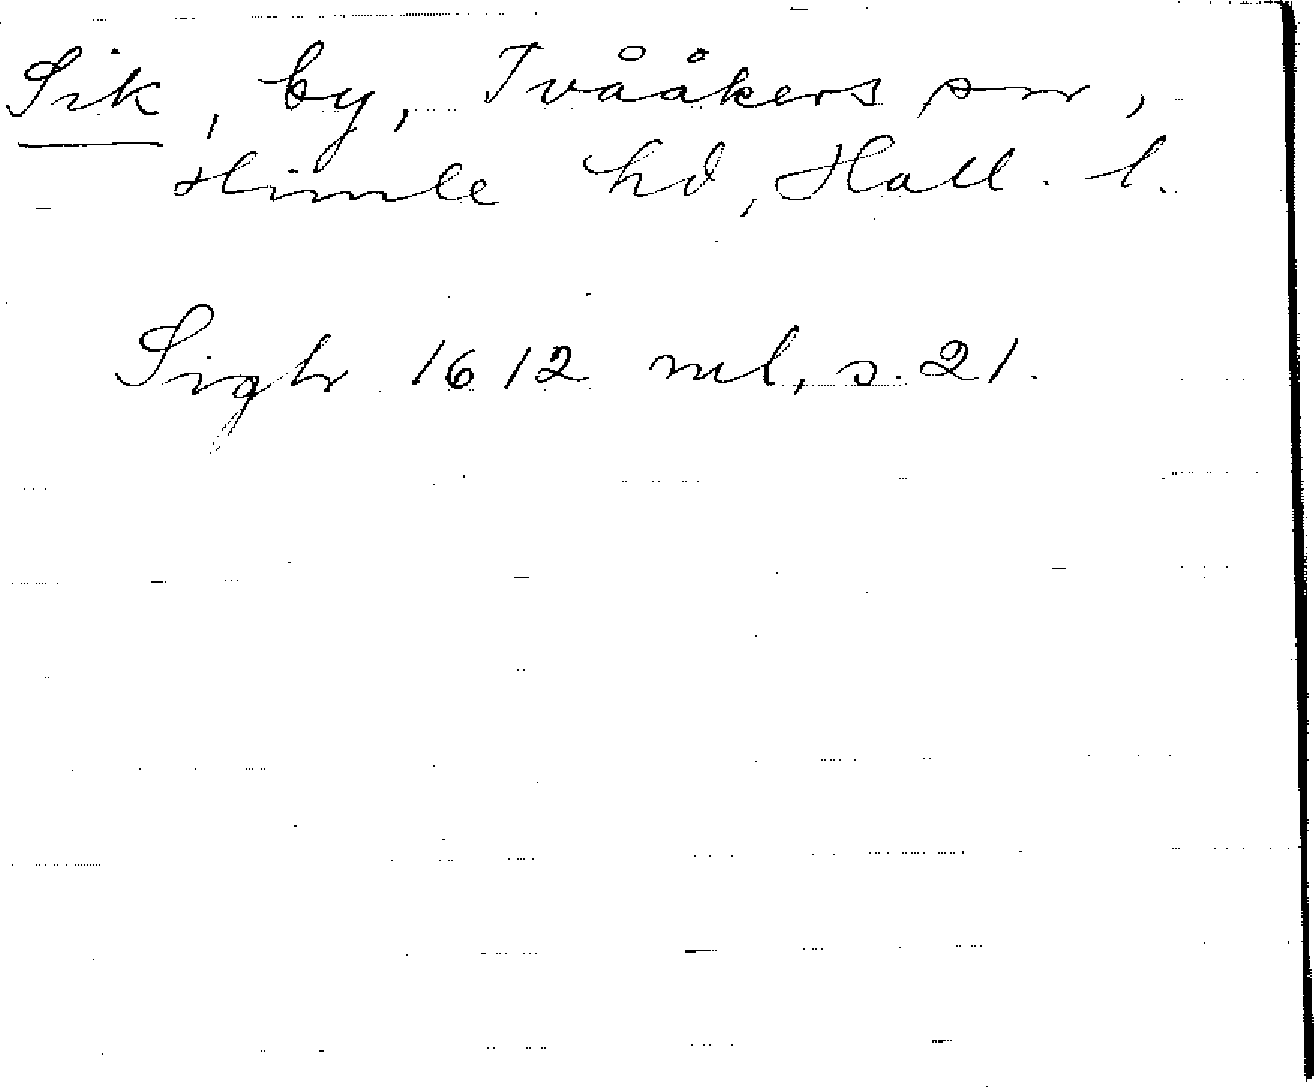 Sik, by, Tvååkers sn,
Himle hd, Hall. l.
Sigh 1612 ml, s. 21.